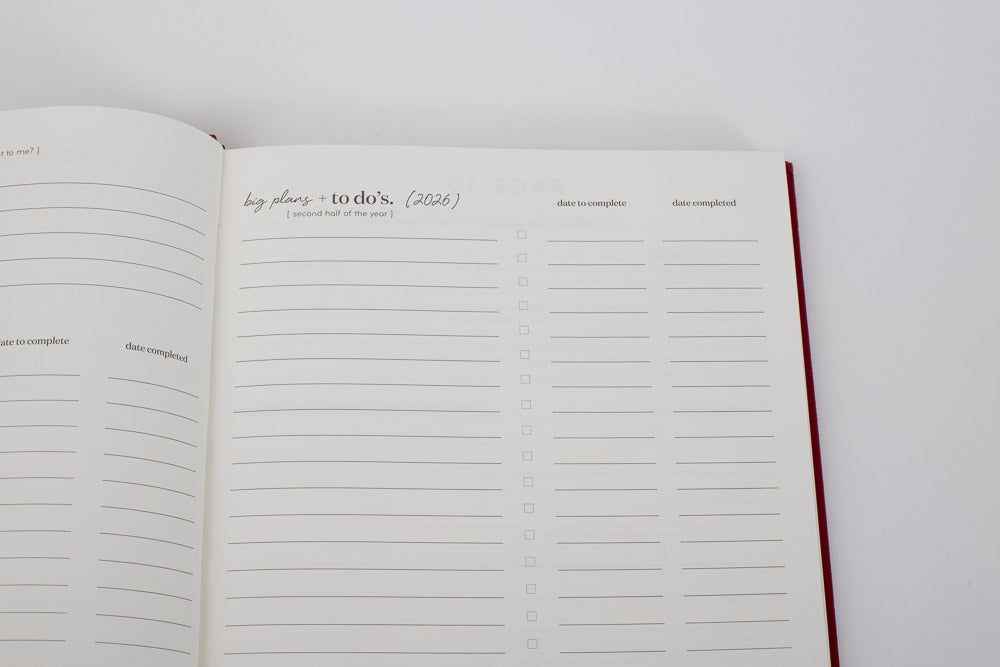 t to me? ]
ate to complete
date completed
big plans + to do's. (2026)
[ second half of the year ]
date to complete
date completed